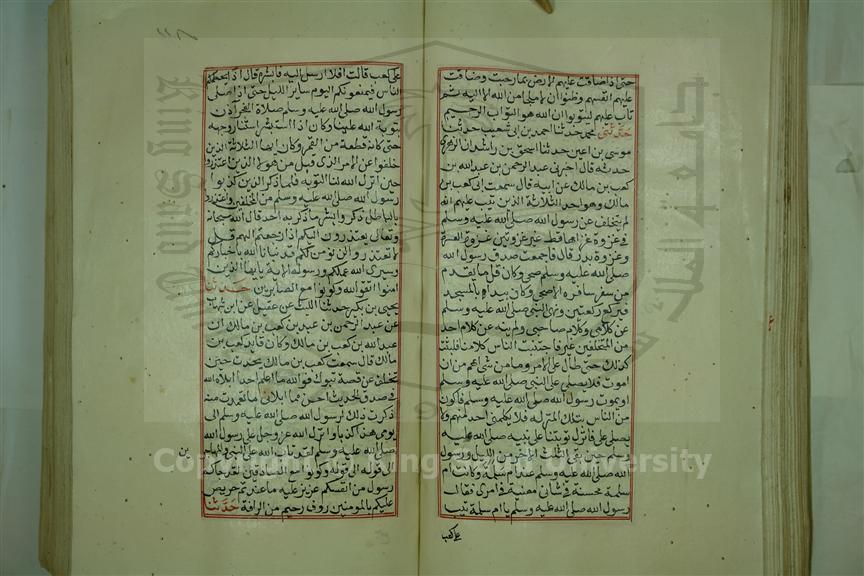 حتى اذا ضاقت عليهم الارض بما رحبت وضاقت
عليهم انفسهم وظنوا ان لا ملجا من الله الا اليه ثم
تاب عليهم ليتوبوا ان الله هو التواب الرحيم
حدثني محمد حدثنا احمد بن ابي شعيب حدثنا
موسى بن اعين حدثنا اسحق بن راشد ان الزهري
حدثه قال اخبرني عبد الرحمن بن عبد الله بن
كعب بن مالك عن ابيه قال سمعت ابي كعب بن
مالك وهو احد الثلاثة الذين تيب عليهم انه
لم يتخلف عن رسول الله صلى الله عليه وسلم
في غزوة غزاها قط غير غزوتين غزوة العسرة
وغزوة بدر قال فاجمعت صدق رسول الله
صلى الله عليه وسلم ضحى وكان قل ما يقدم
من سفر سافره الا ضحى وكان يبدا بالمسجد
فيركع ركعتين ونهى النبي صلى الله عليه وسلم
عن كلامي وكلام صاحبي ولم ينه عن كلام احد
من المتخلفين غيرنا فاجتنب الناس كلامنا فلبثت
كذلك حتى طال علي الامر وما من شئ اهم من ان
اموت فلا يصلي علي النبي صلى الله عليه وسلم
او يموت رسول الله صلى الله عليه وسلم فاكون
من الناس بتلك المنزلة فلا يكلمني احد منهم ولا
يصلي علي فانزل الله توبتنا على نبيه صلى الله عليه
وسلم حين بقي الثلث الاخر من الليل ورسول
الله صلى الله عليه وسلم عند ام سلمة وكانت ام
سلمة محسنة في شاني معنية في امري فقال
رسول الله صلى الله عليه وسلم يا ام سلمة تيب
على كعب
على كعب قالت افلا ارسل اليه فابشره قال اذا يحطمكم
الناس فيمنعونكم النوم ساير الليل حتى اذا صلى
رسول الله صلى الله عليه وسلم صلاة الفجر آذن
بتوبة الله علينا وكان اذا استبشر استنار وجهه
حتى كانه قطعة من القمر وكنا ايها الثلاثة الذين
خلفوا عن الامر الذي قبل من هولاء الذين اعتذروا
حين انزل الله لنا التوبة فلما ذكر الذين كذبوا
رسول الله صلى الله عليه وسلم من المتخلفين واعتذروا
بالباطل ذكروا بشر ما ذكر به احد قال الله سبحانه
وتعالى يعتذرون اليكم اذا رجعتم اليهم قل
لا تعتذروا لن نومن لكم قد نبانا الله من اخباركم
وسيرى الله عملكم ورسوله الاية يايها الذين
امنوا اتقوا الله وكونوا مع الصادقين حدثنا
يحيى بن بكير حدثنا الليث عن عقيل عن ابن شهاب
عن عبد الرحمن بن عبد الله بن كعب بن مالك ان
عبد الله بن كعب بن مالك وكان قايد كعب بن
مالك قال سمعت كعب بن مالك يحدث حين
تخلف عن قصة تبوك فوالله ما اعلم احدا ابلاه الله
في صدق الحديث احسن مما ابلاني ما تعمدت منذ
ذكرت ذلك لرسول الله صلى الله عليه وسلم الى
يومي هذا كذبا وانزل الله عز وجل على رسول الله
صلى الله عليه وسلم لقد تاب الله على النبي والمهاجرين
الى قوله وكونوا مع الصادقين لقد جاءكم
رسول من انفسكم عزيز عليه ما عنتم حريص
عليكم بالمومنين روف رحيم من الرافة حدثنا
Copyright © King Saud University